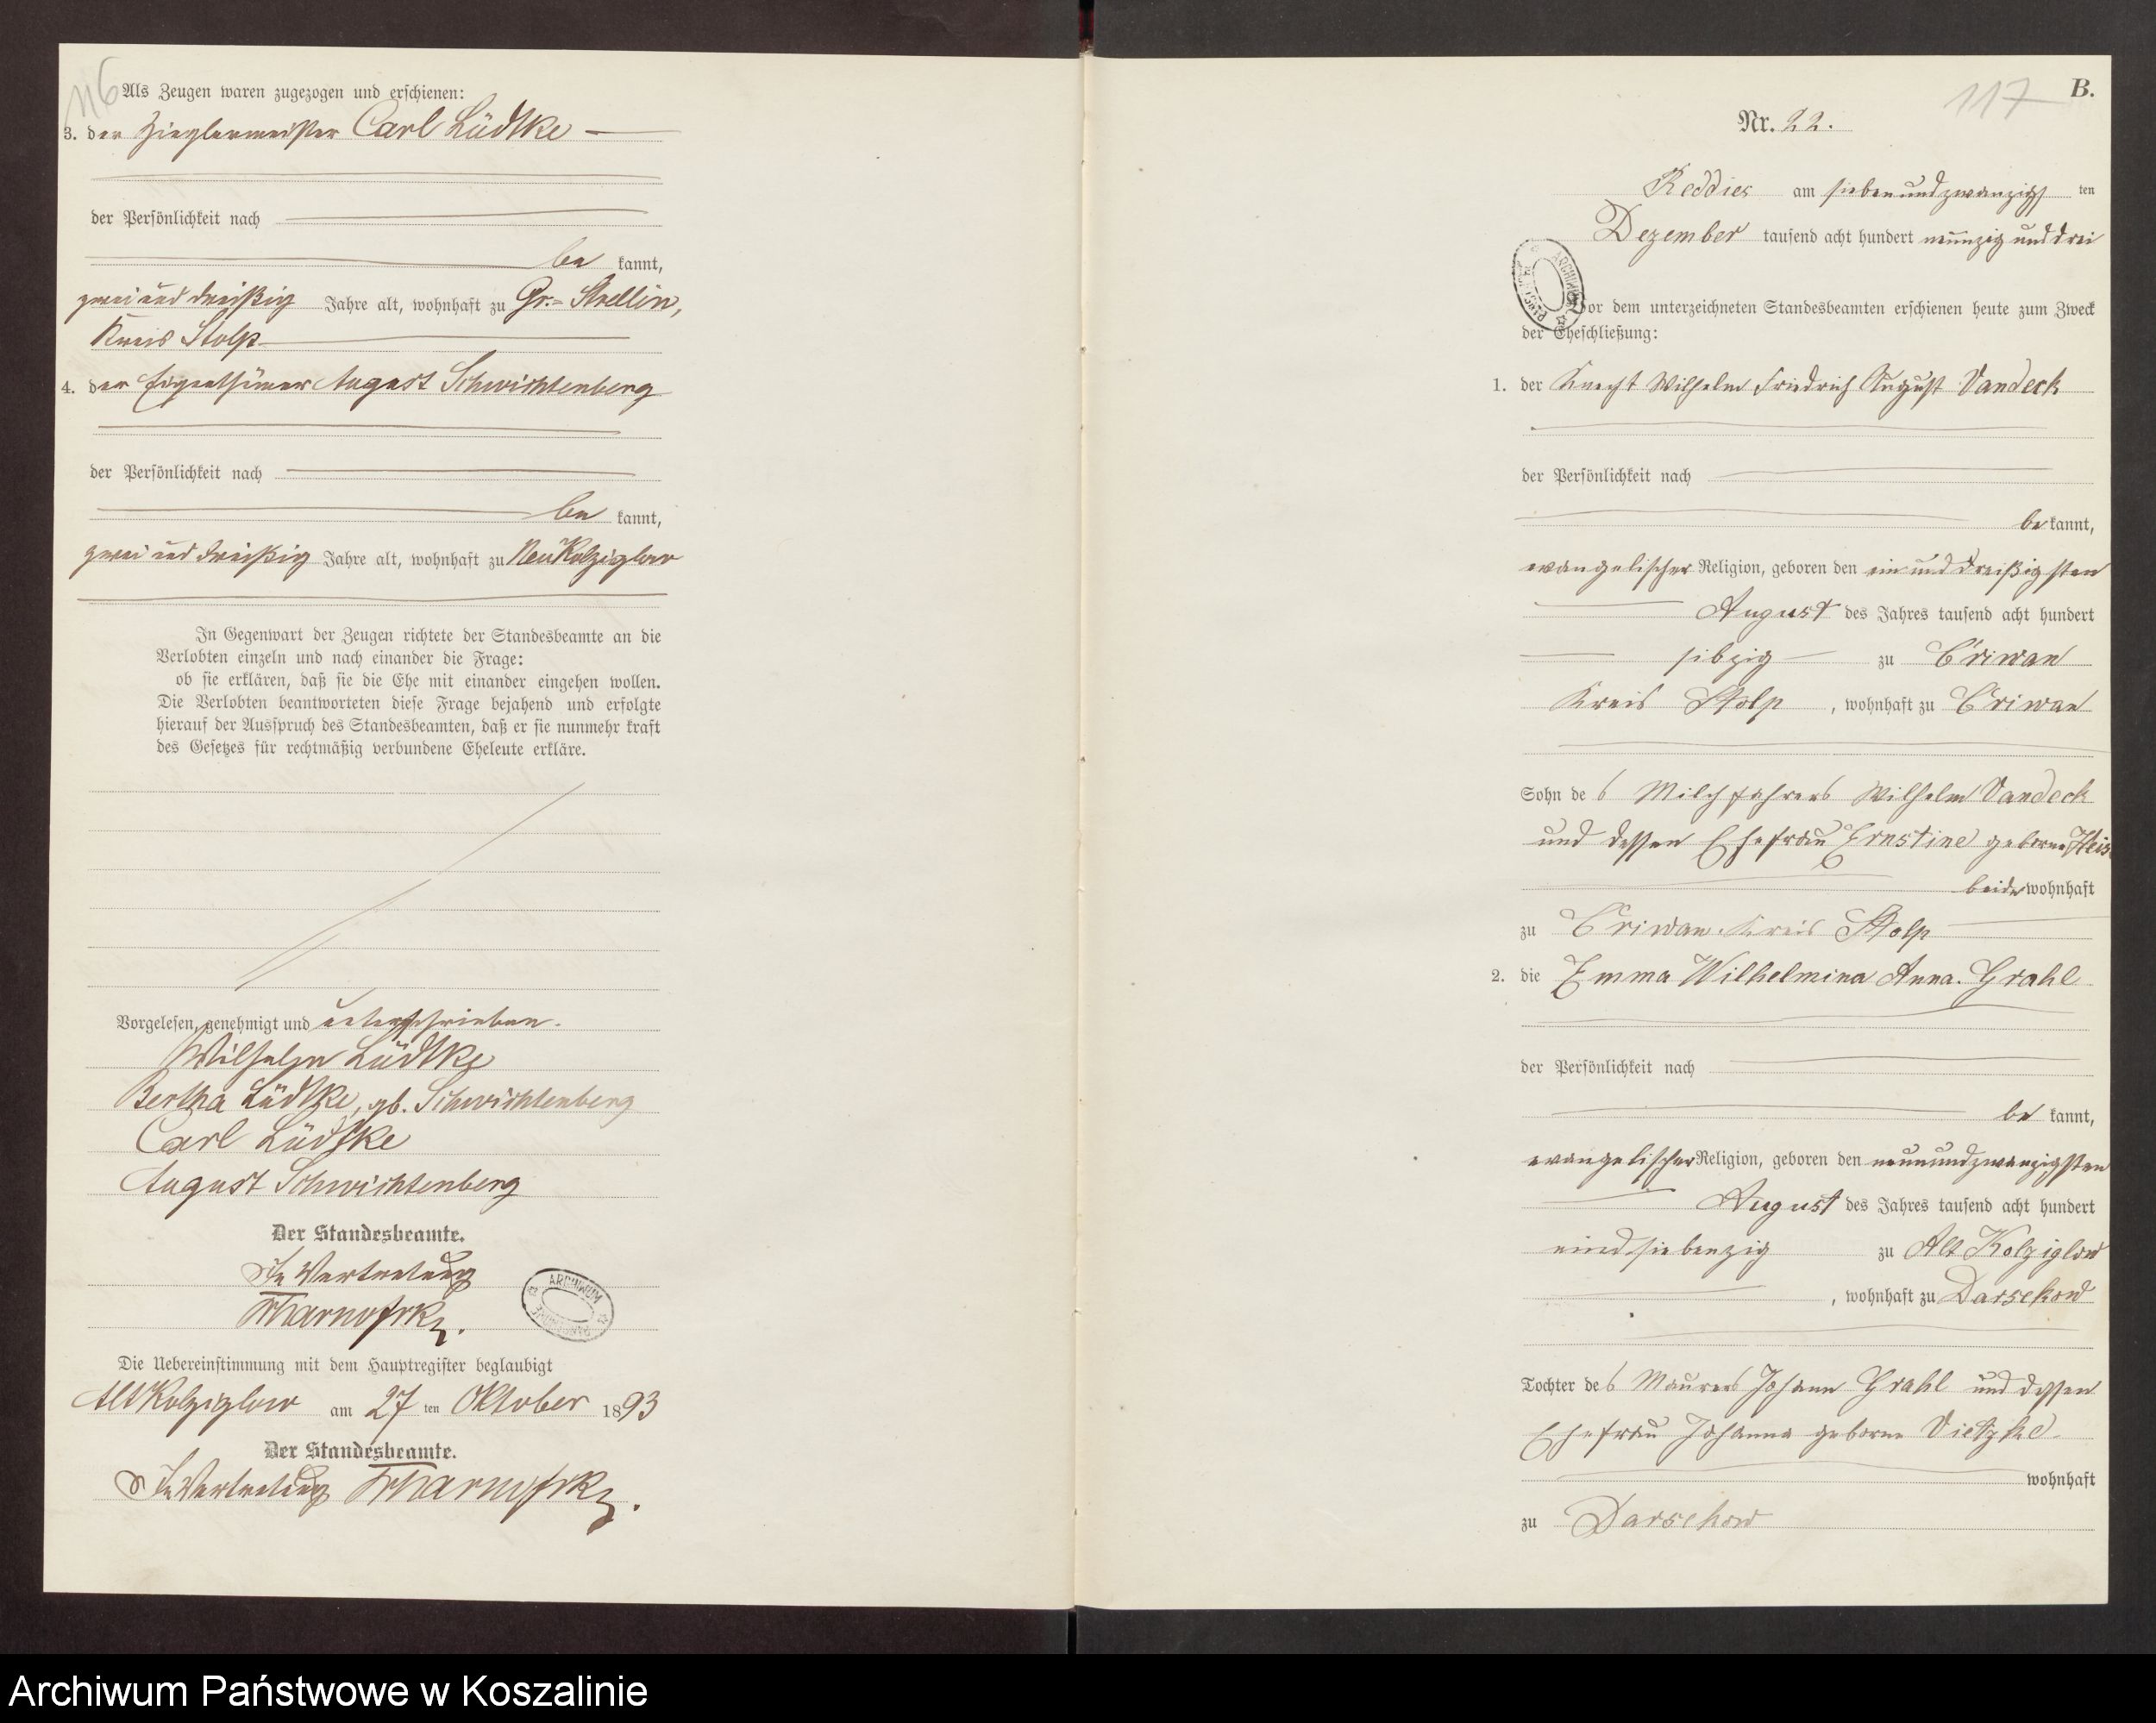 116
Als Zeugen waren zugezogen und erschienen:
3. der Zieglermeister Carl Lüdtke
der Persönlichkeit nach
be kannt,
zwei und dreißig Jahre alt, wohnhaft zu Gr.- Strellin,
Kreis Stolp
4. der Eigenthümer August Schwichtenberg
der Persönlichkeit nach
be kannt,
zwei und dreißig Jahre alt, wohnhaft zu Neu Kolziglow
In Gegenwart der Zeugen richtete der Standesbeamte an die
Verlobten einzeln und nach einander die Frage:
ob sie erklären, daß sie die Ehe mit einander eingehen wollen.
Die Verlobten beantworteten diese Frage bejahend und erfolgte
hierauf der Ausspruch des Standesbeamten, daß er sie nunmehr kraft
des Gesetzes für rechtmäßig verbundene Eheleute erkläre.
Vorgelesen, genehmigt und unterschrieben.
Wilhelm Lüdtke
Bertha Lüdtke, gb. Schwichtenberg
Carl Lüdtke
August Schwichtenberg
Der Standesbeamte.
In Vertretung
ARCHIWUM
Die Uebereinstimmung mit dem Hauptregister beglaubigt
Alt Kolziglow am 27 ten Oktober 1893
Der Standesbeamte.
In Vertretung
117
B.
Nr. 22.
Reddies am siebenundzwanzigs ten
Dezember tausend acht hundert neunzig und drei
ARCHIWUM
Vor dem unterzeichneten Standesbeamten erschienen heute zum Zweck
der Eheschließung:
1. der Knecht Wilhelm Friedrich August Vandeck
der Persönlichkeit nach
be kannt,
evangelischer Religion, geboren den ein und dreißigsten
August des Jahres tausend acht hundert
sibzig zu Criwan
Kreis Stolp, wohnhaft zu Criwan
Sohn de s Milchfahrers Wilhelm Vandeck
und dessen Ehefrau Ernstine geborne
beide wohnhaft
zu Criwan. Kreis Stolp
2. die Emma Wilhelmina Anna. Grahl
der Persönlichkeit nach
be kannt,
evangelischer Religion, geboren den neunundzwanzigsten
August des Jahres tausend acht hundert
eindsiebenzig zu Alt Kolziglow
, wohnhaft zu Darsekow
Tochter de s Maurers Johann Grahl und dessen
Ehefrau Johanna geborne Vietzke
wohnhaft
zu Darsekow
Archiwum Państwowe w Koszalinie